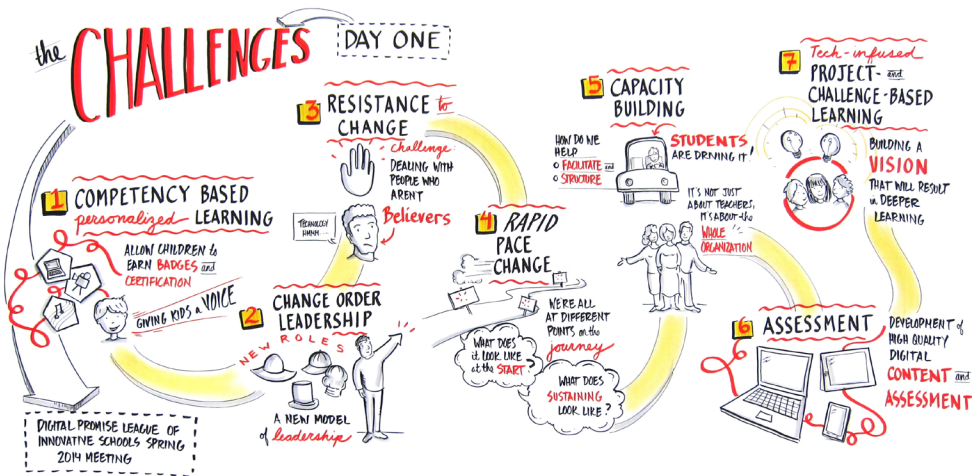 the CHALLENGES
DAY ONE
1 COMPETENCY BASED
personalized LEARNING
ALLOW CHILDREN to
EARN BADGES and
CERTIFICATION
GIVING KIDS a VOICE
DIGITAL PROMISE LEAGUE OF
INNOVATIVE SCHOOLS SPRING
2014 MEETING
2 CHANGE ORDER
LEADERSHIP
NEW ROLES
A NEW MODEL
of leadership
3 RESISTANCE to
CHANGE
challenge:
DEALING WITH
PEOPLE WHO
ARENT
Believers
TECHNOLOGY
HMMM
4 RAPID
PACE
CHANGE
WE'RE ALL
AT DIFFERENT
POINTS on the
journey
WHAT DOES
it LOOK LIKE
at the START?
WHAT DOES
SUSTAINING
LOOK LIKE?
5 CAPACITY
BUILDING
HOW DO WE
HELP
FACILITATE and
STRUCTURE
STUDENTS
ARE DRIVING IT!
IT'S NOT JUST
ABOUT TEACHERS,
IT'S ABOUT the
WHOLE
ORGANIZATION
6 ASSESSMENT
DEVELOPMENT of
HIGH QUALITY
DIGITAL
CONTENT and
ASSESSMENT
7 Tech-infused
PROJECT- and
CHALLENGE-BASED
LEARNING
BUILDING A
VISION
THAT WILL RESULT
in DEEPER
LEARNING